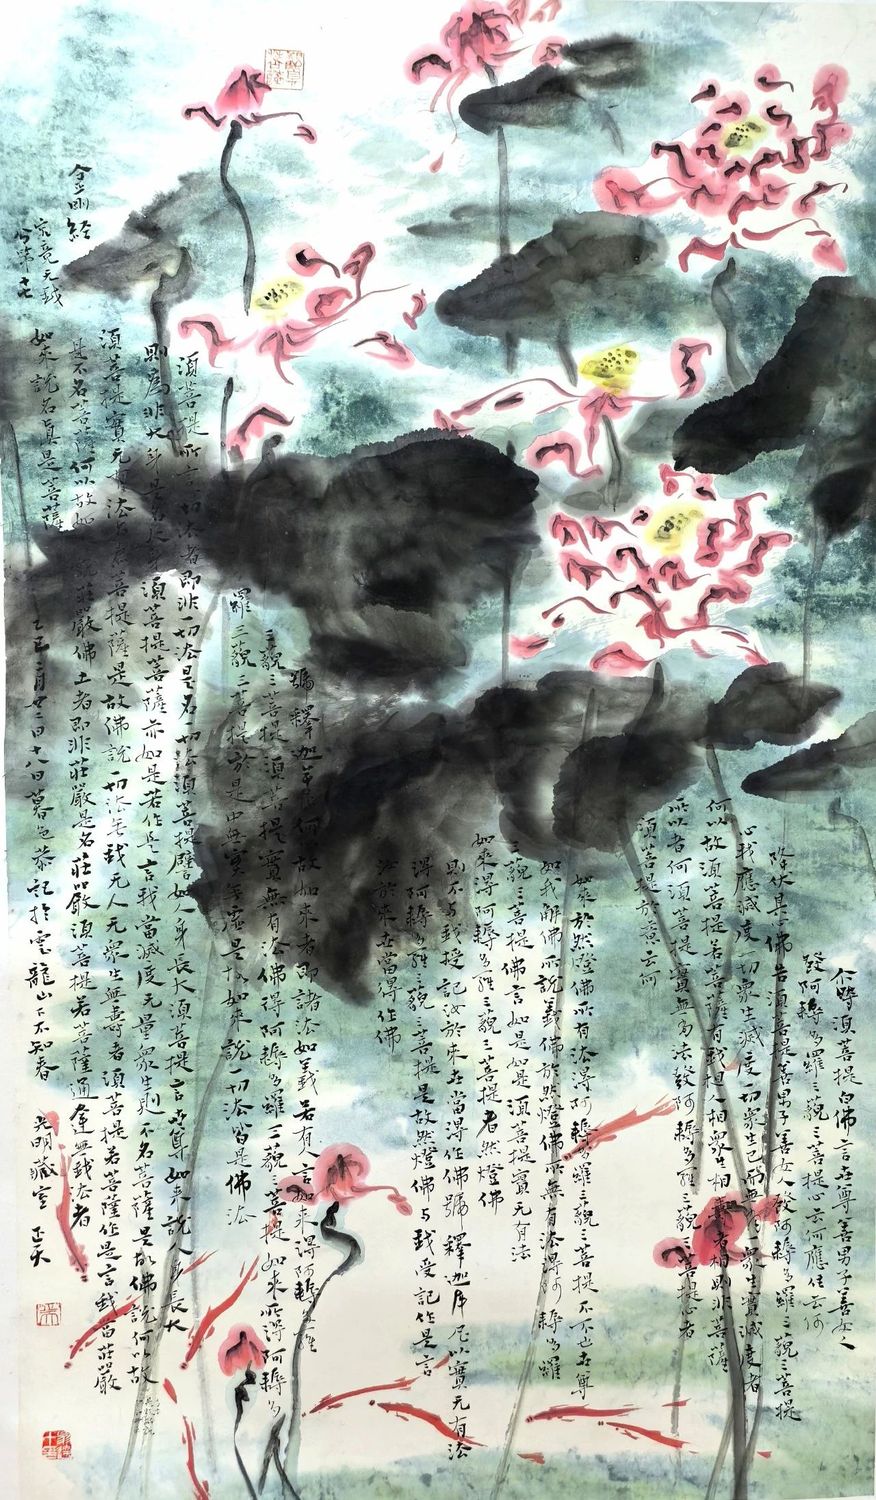 尒時須菩提白佛言世尊善男子善女人
發阿耨多羅三藐三菩提心云何應住云何
降伏其心佛告須菩提善男子善女人發阿耨多羅三藐三菩提
心我應滅度一切衆生滅度一切衆生已而無有一衆生實滅度者
何以故須菩提若菩薩有我相人相衆生相壽者相則非菩薩
所以者何須菩提實無有法發阿耨多羅三藐三菩提心者
須菩提於意云何
如來於然燈佛所有法得阿耨多羅三藐三菩提不不也世尊
如我解佛所說義佛於然燈佛所無有法得阿耨多羅
三藐三菩提佛言如是如是須菩提實无有法
如來得阿耨多羅三藐三菩提者然燈佛
則不与我授記汝於來世當得作佛號釋迦牟尼以實无有法
得阿耨多羅三藐三菩提是故然燈佛与我受記作是言
汝於來世當得作佛
號釋迦牟尼何以故如來者即諸法如義若有人言如來得阿耨多羅
三藐三菩提須菩提實無有法佛得阿耨多羅三藐三菩提如來所得阿耨多
羅三藐三菩提於是中無實無虛是故如來說一切法皆是佛法
須菩提所言一切法者即非一切法是名一切法須菩提譬如人身長大須菩提言世尊如來說人身長大
則為非大身是名大身須菩提菩薩亦如是若作是言我當滅度无量衆生則不名菩薩是故佛說何以故
須菩提實无有法名為菩提薩是故佛說一切法无我无人无衆生無壽者須菩提若菩薩作是言我當莊嚴
是不名菩薩何以故如莊嚴佛土者即非莊嚴是名莊嚴須菩提若菩薩通達無我法者
如來說名真是菩薩
金剛經
究竟无我
分第十七
乙巳二月廿二日十八日暮色恭記於雲龍山下不知春
光明藏室 正天